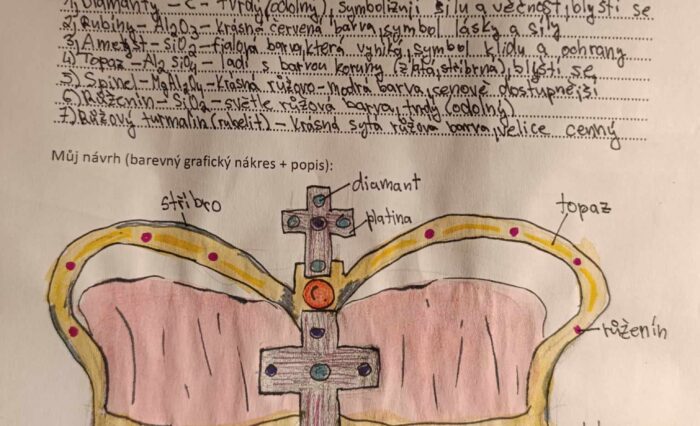 1) Diamanty – C – tvrdý (odolný), symbolizují sílu a věčnost, blýští se
2) Rubíny – Al2O3 – krásná červená barva, symbol lásky a síly
3) Ametyst – SiO2 – fialová barva, která vyniká, symbol klidu a ochrany
4) Topaz – Al2 SiO4 – ladí s barvou koruny (zlatá, stříbrná), blýští se
5) Spinel – MgAl2O4 – krásná růžovo-modrá barva, cenově dostupnější
6) Růženín – SiO2 – světle růžová barva, tvrdý (odolný)
7) Růžový turmalín (rubelit) – krásná sytá růžová barva, velice cenný
Můj návrh (barevný grafický nákres + popis):
diamant
stříbro
topaz
platina
růženín